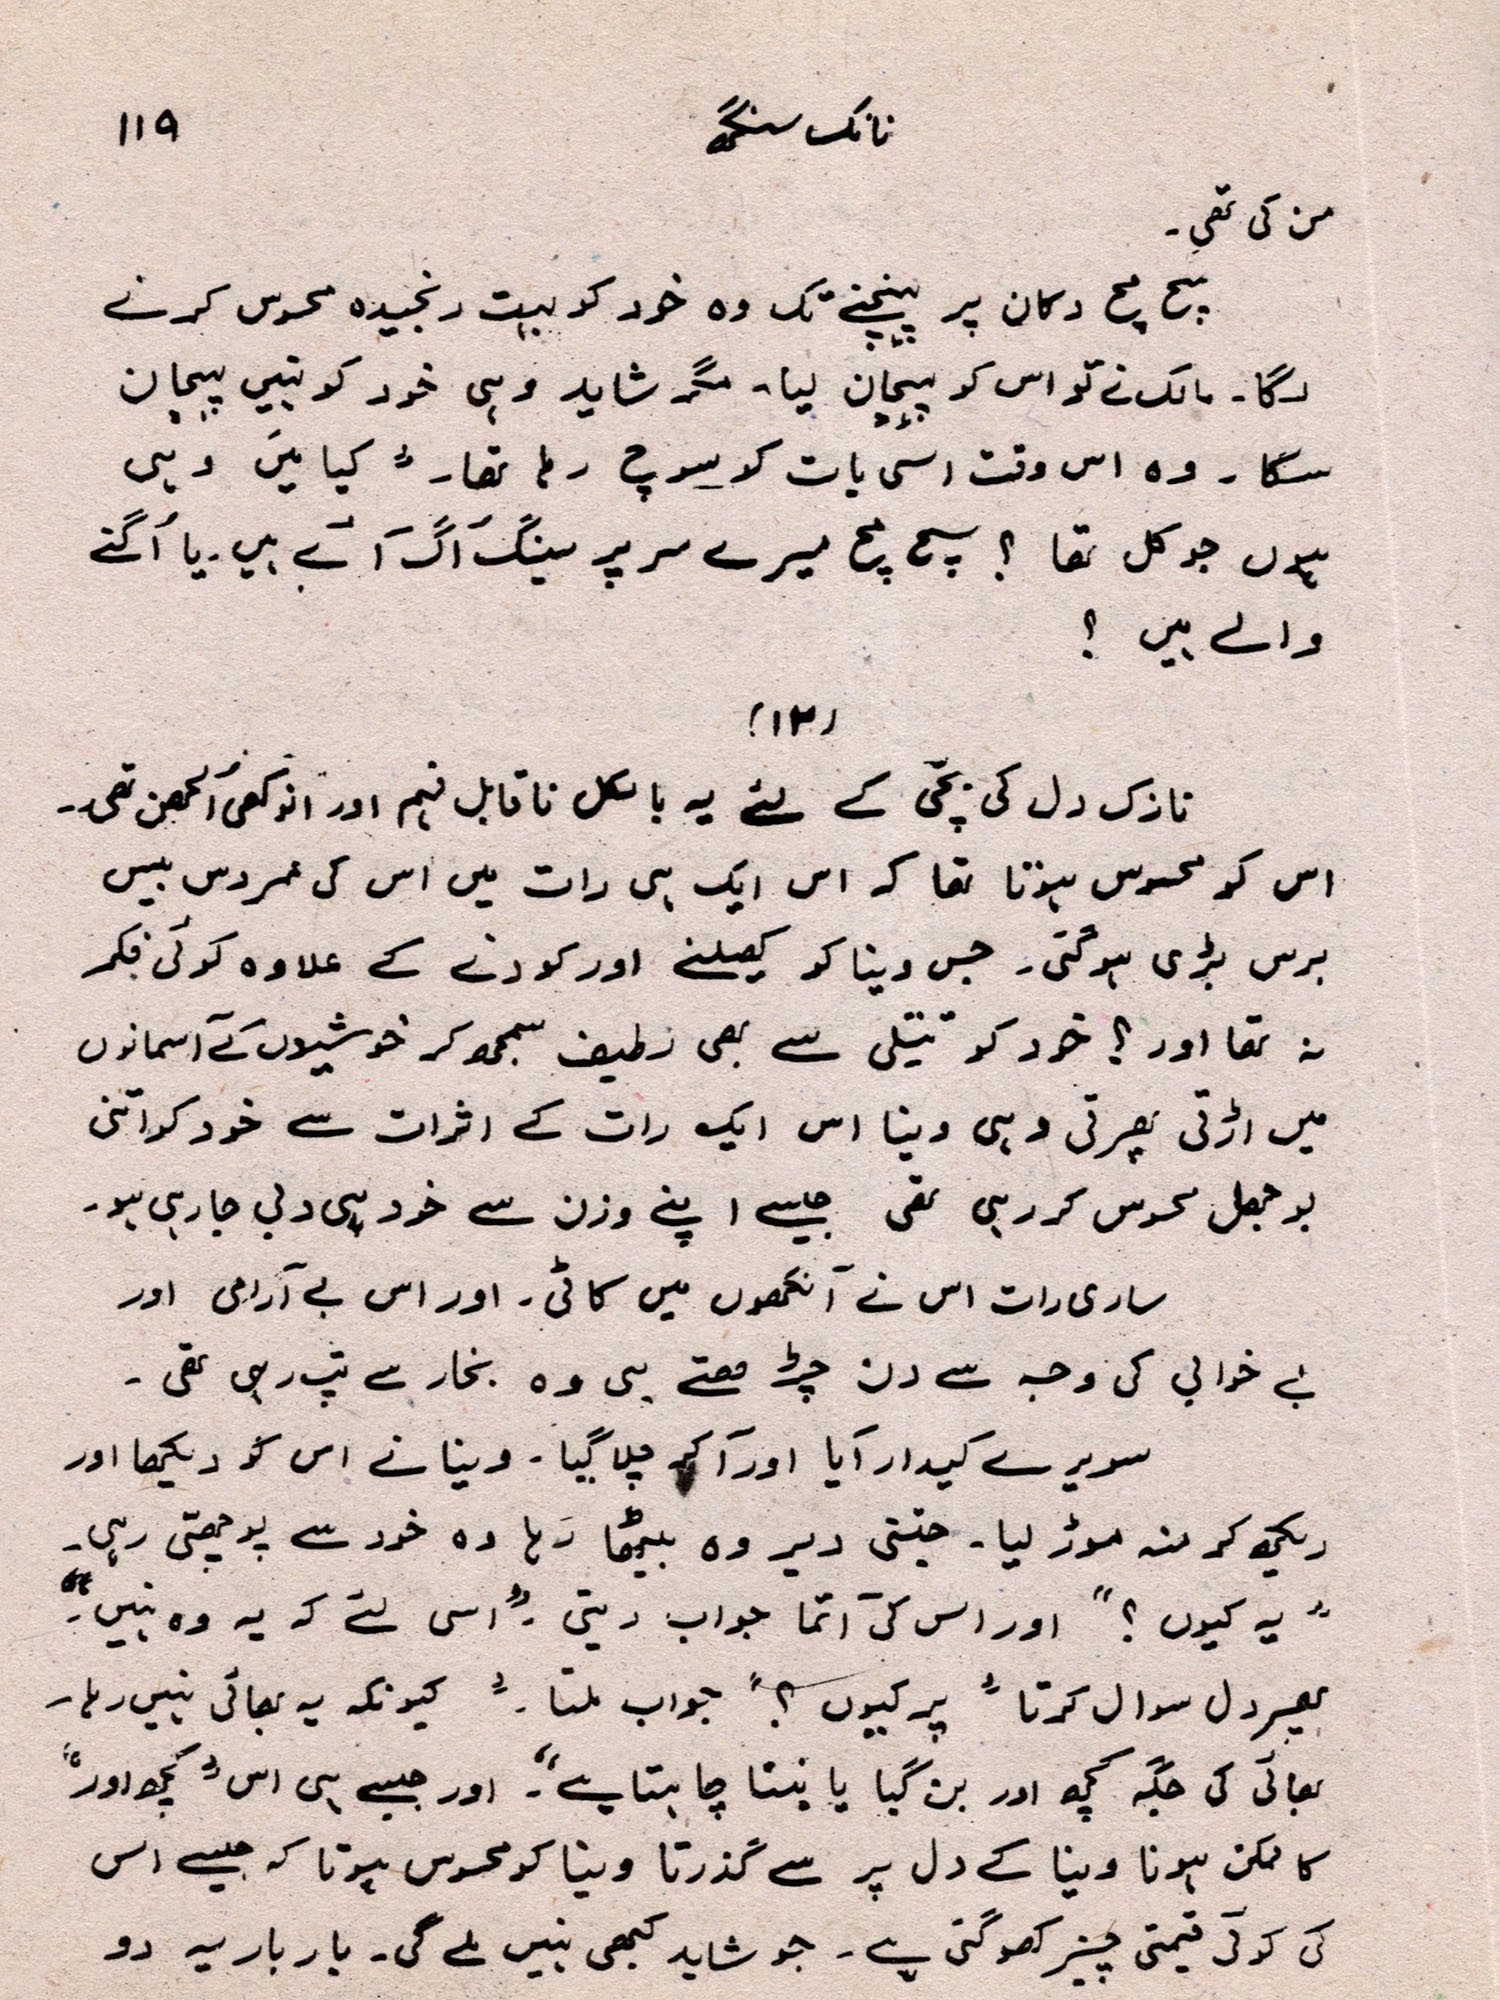 نانک سنگھ ۱۱۹
من کی تھی۔
سچ مچ دکان پر پہنچنے تک وہ خود کو بہت رنجیدہ محسوس کرنے
لگا۔ مالک نے تو اس کو پہچان لیا۔ مگر شاید وہی خود کو نہیں پہچان
سکا۔ وہ اس وقت اسی بات کو سوچ رہا تھا۔ " کیا میں وہی
ہوں جو کل تھا ؟ سچ مچ میرے سر پر سینگ اُگ آئے ہیں۔ یا اُگنے
والے ہیں ؟
(۱۳)
نازک دل کی بچّی کے لئے یہ بالکل ناقابل فہم اور انوکھی اُلجھن تھی۔
اس کو محسوس ہوتا تھا کہ اس ایک ہی رات میں اس کی عمر دس بیس
برس بڑی ہوگئی۔ جس وینا کو کھیلنے اور کودنے کے علاوہ کوئی فکر
نہ تھا اور ؟ خود کو تیتلی سے بھی لطیف سمجھ کر خوشیوں کے آسمانوں
میں اڑتی پھرتی وہی وینا اس ایک رات کے اثرات سے خود کو اتنی
بوجھل محسوس کر رہی تھی جیسے اپنے وزن سے خود ہی دبی جا رہی ہو۔
ساری رات اس نے آنکھوں میں کاٹی۔ اور اس بے آرامی اور
بے خوابی کی وجہ سے دن چڑھتے ہی وہ بخار سے تپ رہی تھی ۔
سویرے کیدار آیا اور آکر چلا گیا۔ وینا نے اس کو دیکھا اور
دیکھ کر منہ موڑ لیا۔ جتنی دیر وہ بیٹھا رہا وہ خود سے پوچھتی رہی۔
" یہ کیوں ؟ " اور اس کی آتما جواب دیتی ۔ " اسی لئے کہ یہ وہ نہیں۔"
پھر دل سوال کرتا " پر کیوں ؟ " جواب ملتا ۔ " کیونکہ یہ بھائی نہیں رہا۔
بھائی کی جگہ کچھ اور بن گیا یا بننا چاہتا ہے "۔ اور جیسے ہی اس " کچھ اور "
کا ممکن ہونا وینا کے دل پر سے گذرتا وینا کو محسوس ہوتا کہ جیسے اس
کی کوئی قیمتی چیز کھو گئی ہے ۔ جو شاید کبھی نہیں ملے گی۔ بار بار یہ دو